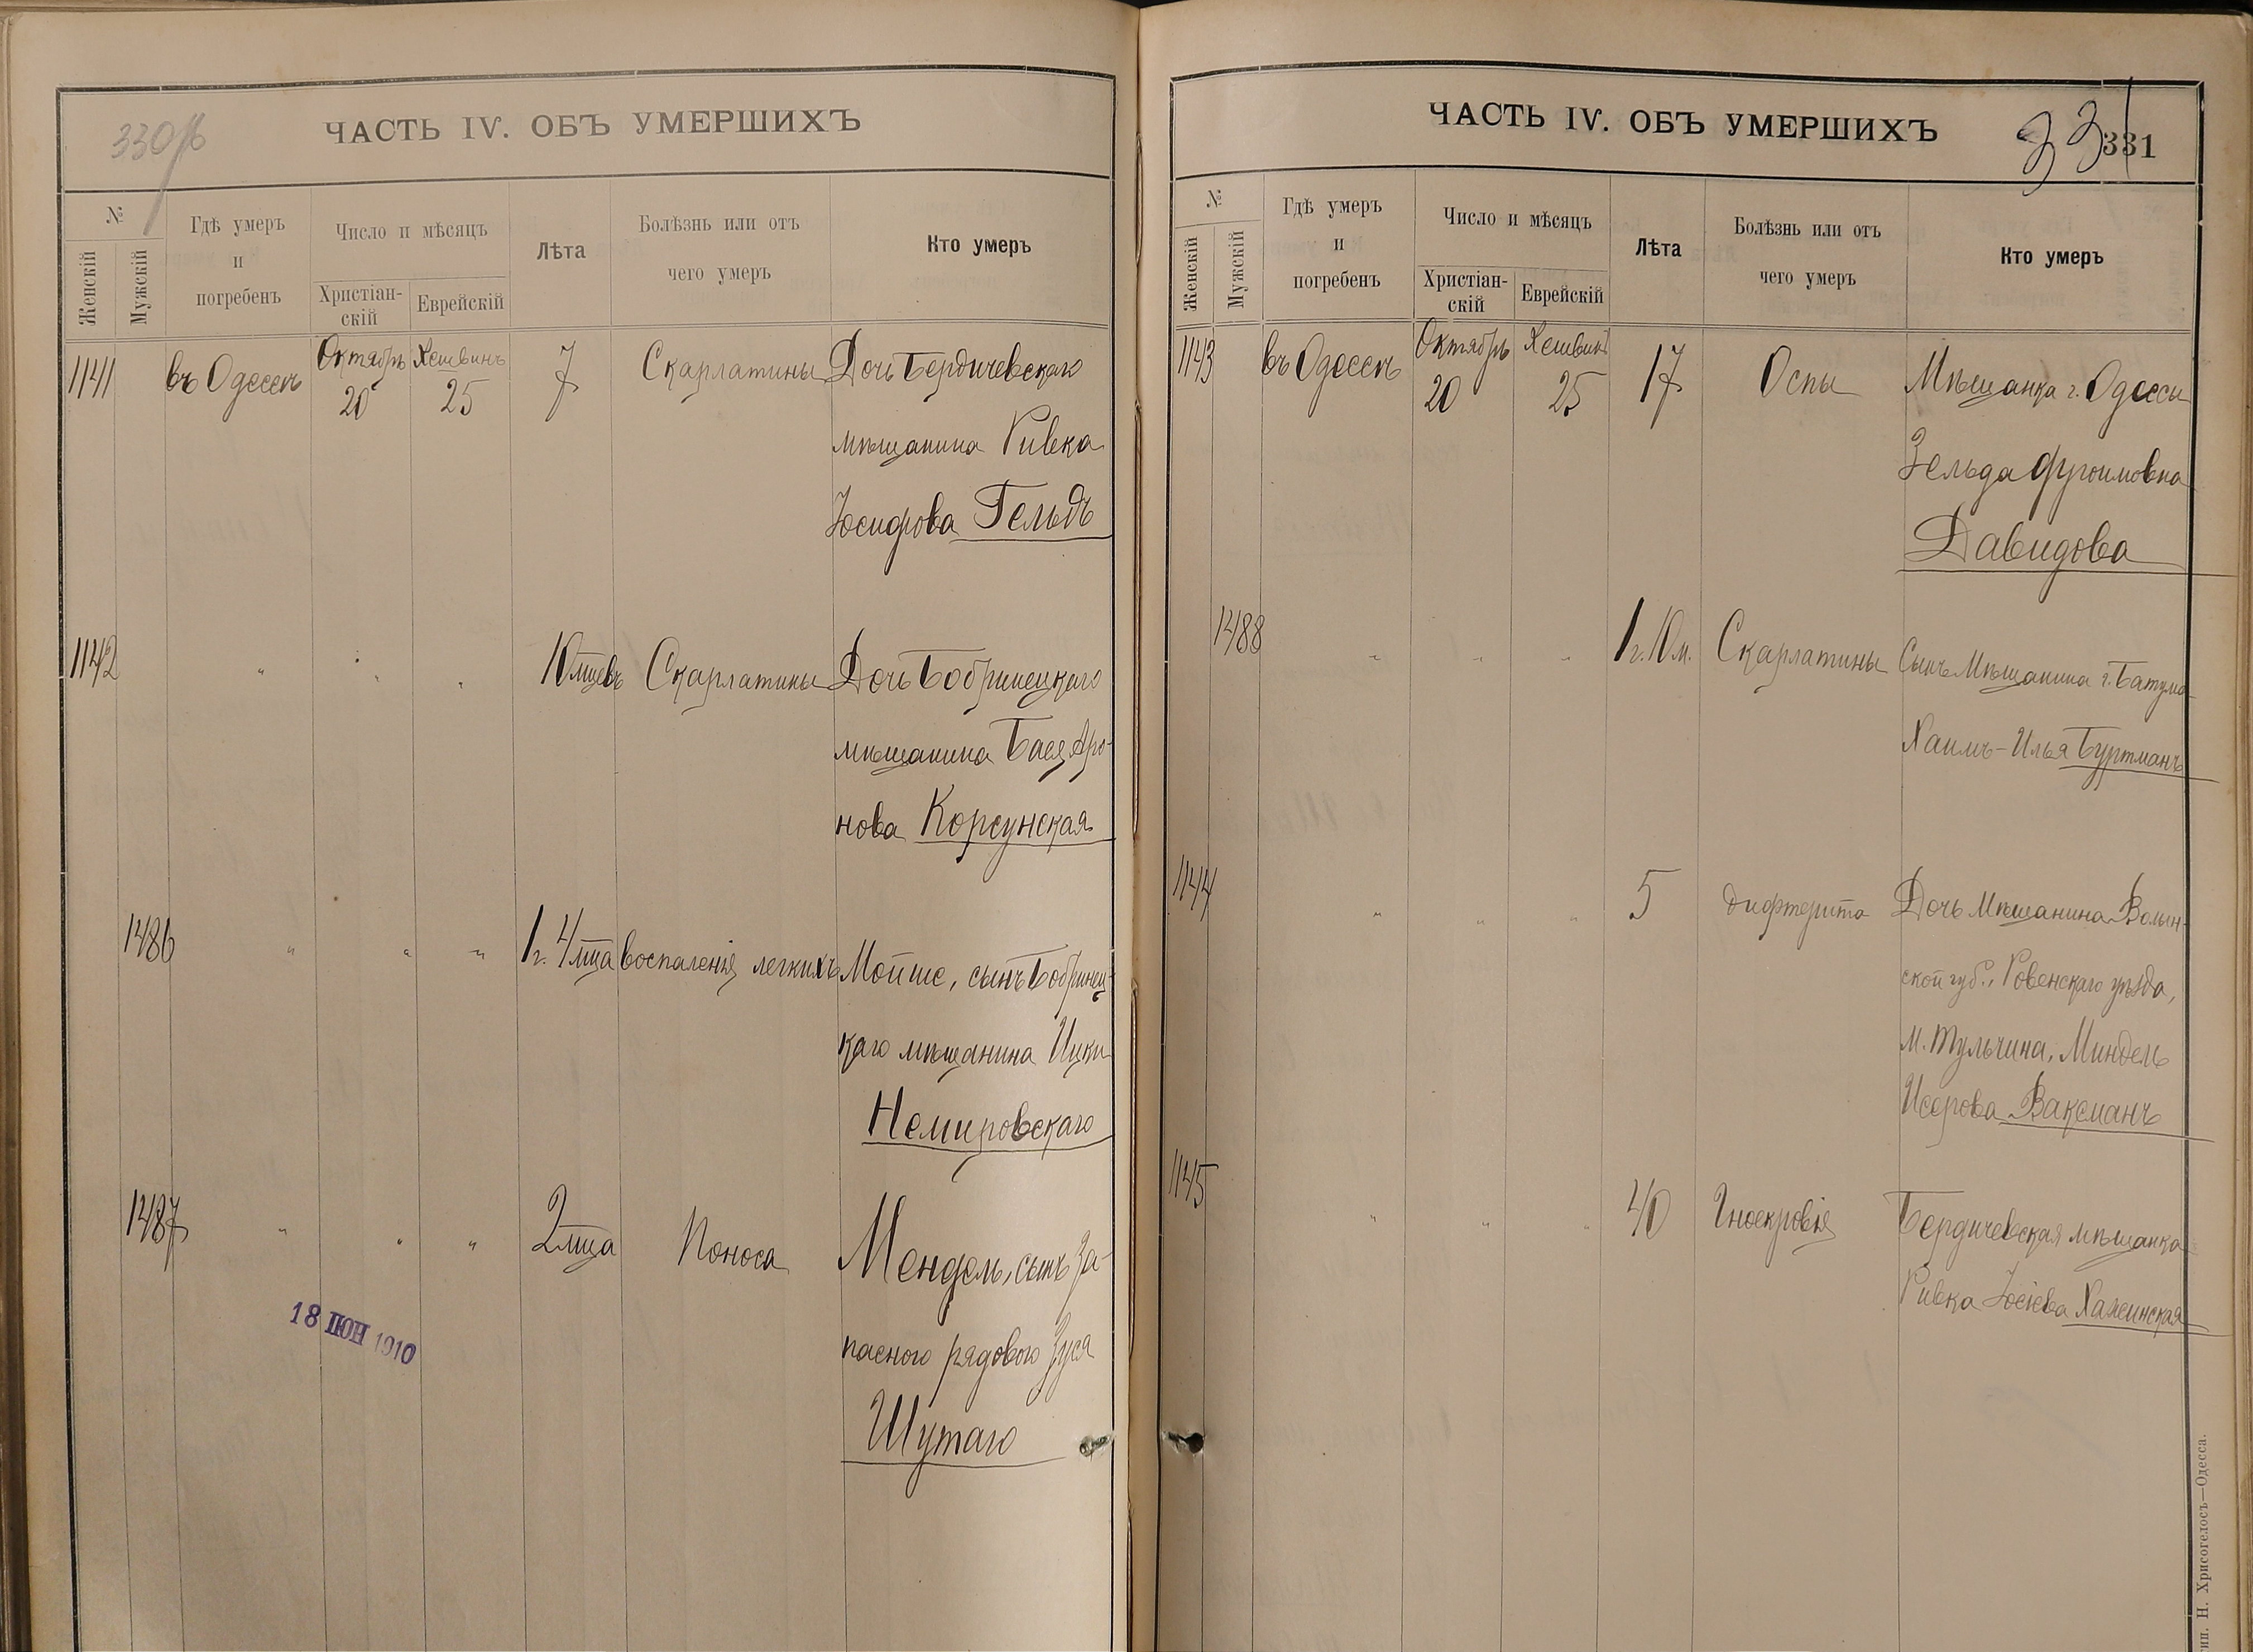 330об
ЧАСТЬ IV. ОБЪ УМЕРШИХЪ
№
Женскій
Мужскій
Гдѣ умеръ
и
погребенъ
Число и мѣсяцъ
Христіан-
скій
Еврейскій
Лѣта
Болѣзнь или отъ
чего умеръ
Кто умеръ
1141 въ Одессѣ Октябрь 20 Хешвинъ 25 7 Скарлатины Дочь Бердичевскаго
мѣщанина Ривка
Іосифова Гельдъ
1142 " " " 10 мцевъ Скарлатины Дочь Бобринецкаго
мѣщанина Бася Аро-
нова Корсунская
1486 " " " 1 г. 4 мца воспаленія легкихъ Мойше, сынъ Бобринец-
каго мѣщанина Ицки
Немировскаго
1487 " " " 2 мца Поноса Мендель, сынъ За-
паснаго рядового Зуся
Шутаго
18 ІЮН 1910
ЧАСТЬ IV. ОБЪ УМЕРШИХЪ
331
331
№
Женскій
Мужскій
Гдѣ умеръ
и
погребенъ
Число и мѣсяцъ
Христіан-
скій
Еврейскій
Лѣта
Болѣзнь или отъ
чего умеръ
Кто умеръ
1143 въ Одессѣ Октябрь 20 Хешвинъ 25 17 Оспы Мѣщанка г. Одессы
Зельда Фроимовна
Давидова
1488 " " " 1 г. 10 м. Скарлатины Сынъ Мѣщанина г. Батума
Хаимъ-Илья Буртманъ
1144 " " " 5 дифтерита Дочь Мѣщанина Волын-
ской губ., Ровенскаго уѣзда,
м. Тульчина, Миндель
Исерова Ваксманъ
1145 " " " 40 Гноекровія Бердичевская мѣщанка
Ривка Іосіева Хажинская
тип. Н. Хрисогелосъ—Одесса.